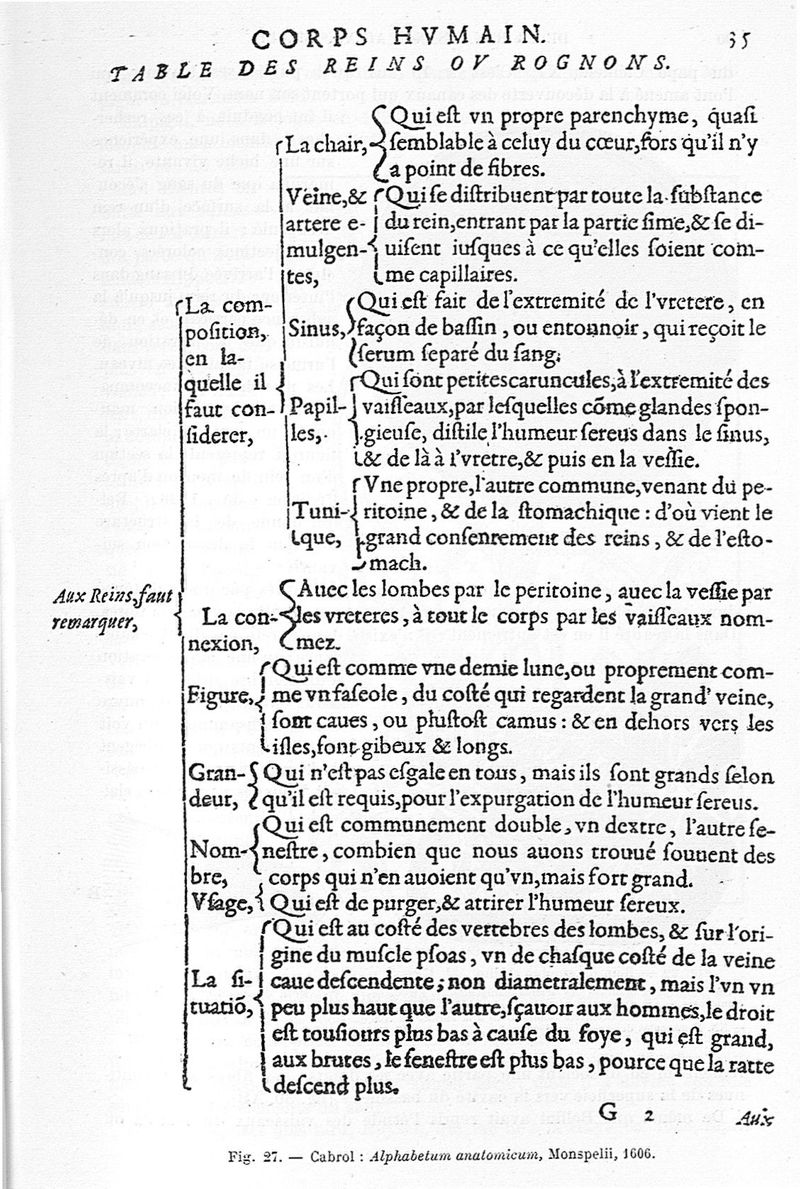 CORPS HVMAIN. 35
TABLE DES REINS OV ROGNONS.
Qui eſt vn propre parenchyme, quaſi
La chair, ſemblable à celuy du cœur, fors qu'il n'y
a point de fibres.
Veine, & Qui ſe diſtribuent par toute la ſubſtance
artere e- du rein, entrant par la partie ſime, & ſe di-
mulgen- uiſent iuſques à ce qu'elles ſoient com-
tes, me capillaires.
La com- Qui eſt fait de l'extremité de l'vretere, en
poſition, Sinus, façon de baſſin, ou entonnoir, qui reçoit le
en la- ſerum ſeparé du ſang.
quelle il Qui ſont petites caruncules, à l'extremité des
faut con- Papil- vaiſſeaux, par leſquelles cõme glandes ſpon-
ſiderer, les, gieuſe, diſtile l'humeur ſereus dans le ſinus,
& de là à l'vretre, & puis en la veſſie.
Vne propre, l'autre commune, venant du pe-
Tuni- ritoine, & de la ſtomachique : d'où vient le
que, grand conſenrement des reins, & de l'eſto-
mach.
Aux Reins, faut Auec les lombes par le peritoine, auec la veſſie par
remarquer, La con- les vreteres, à tout le corps par les vaiſſeaux nom-
nexion, mez.
Qui eſt comme vne demie lune, ou proprement com-
Figure, me vn faſeole, du coſté qui regardent la grand' veine,
ſont caues, ou pluſtoſt camus : & en dehors vers les
iſles, font gibeux & longs.
Gran- Qui n'eſt pas eſgale en tous, mais ils ſont grands ſelon
deur, qu'il eſt requis, pour l'expurgation de l'humeur ſereus.
Qui eſt communement double, vn dextre, l'autre ſe-
Nom- neſtre, combien que nous auons trouué ſouuent des
bre, corps qui n'en auoient qu'vn, mais fort grand.
Vſage, Qui eſt de purger, & attirer l'humeur ſereux.
Qui eſt au coſté des vertebres des lombes, & ſur l'ori-
gine du muſcle pſoas, vn de chaſque coſté de la veine
La ſi- caue deſcendente; non diametralement, mais l'vn vn
tuatiõ, peu plus haut que l'autre, ſçauoir aux hommes, le droit
eſt touſiours plus bas à cauſe du foye, qui eſt grand,
aux brutes, le ſeneſtre eſt plus bas, pource que la ratte
deſcend plus.
G 2 Aux
Fig. 27. — Cabrol : Alphabetum anatomicum, Monspelii, 1606.